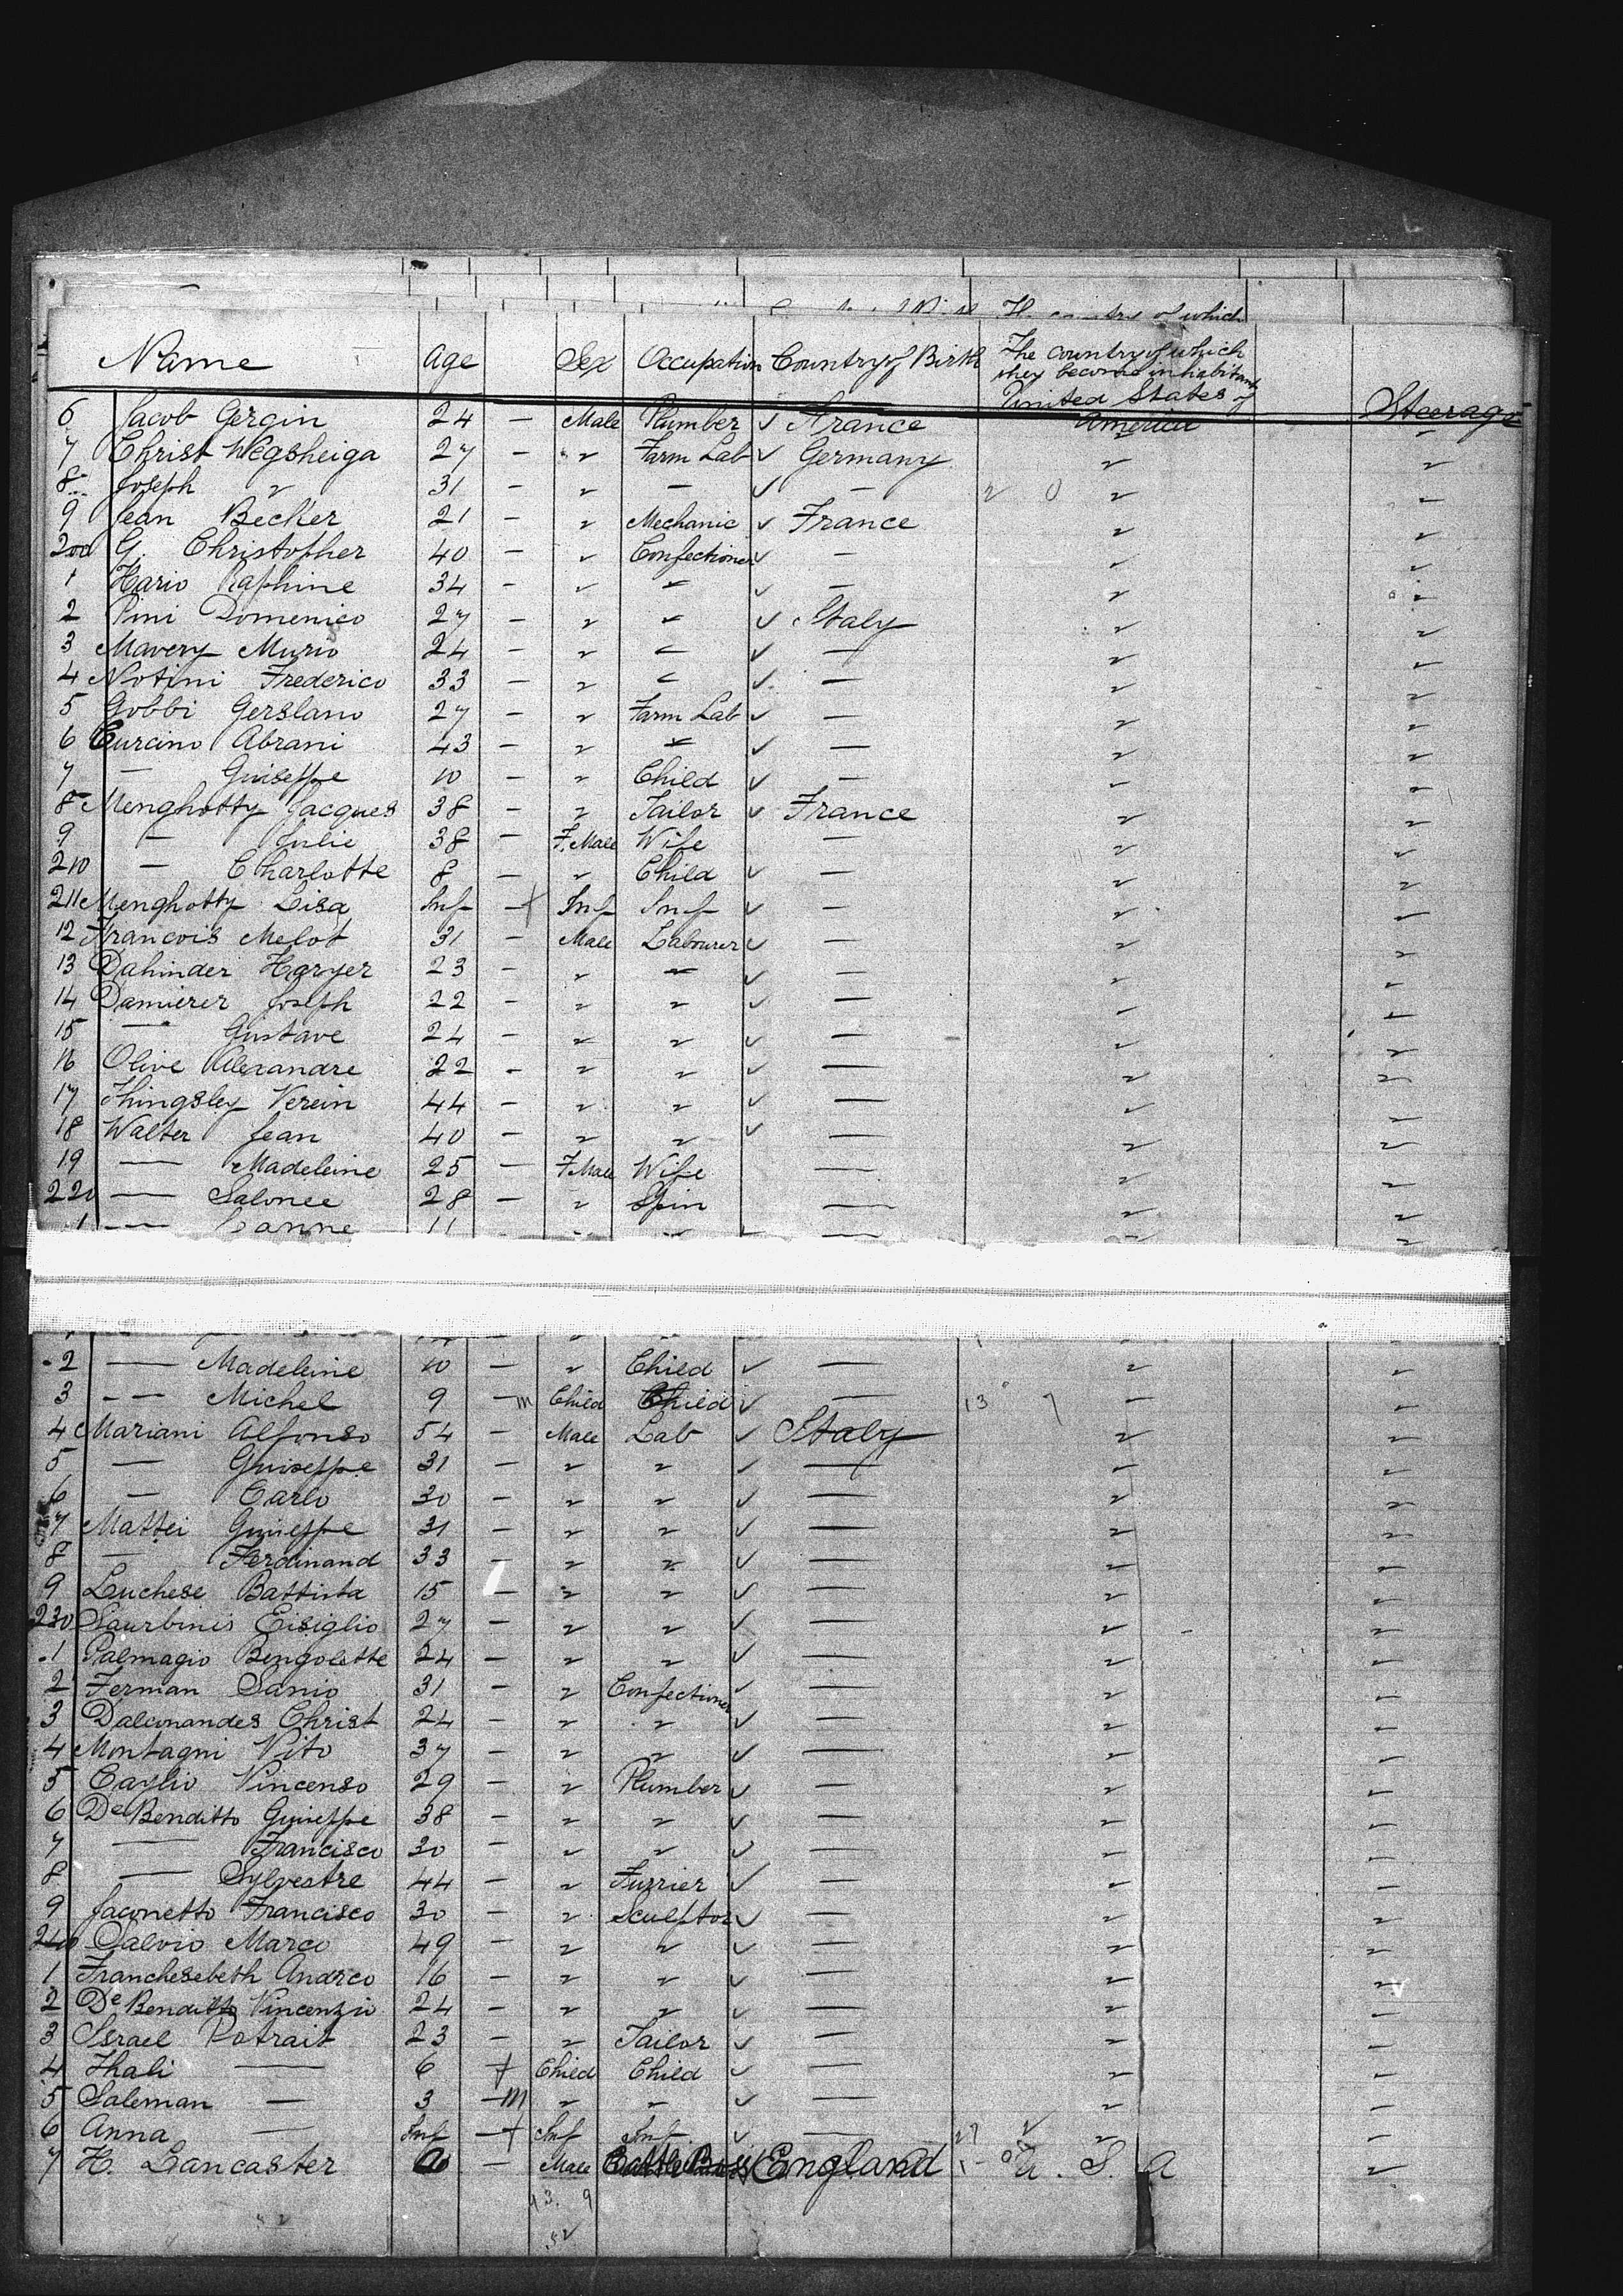 The country of which
Name Age Sex Occupation Country of Birth The country of which they become inhabitants
United States of America Steerage
6 Jacob Gergin 24 — Male Plumber ✓ France
7 Christ Wegsheiga 27 — " Farm Lab ✓ Germany " "
8 Joseph " 31 — " — ✓ — " —
9 Jean Becker 21 — " Mechanic ✓ France " "
200 G. Christopher 40 — " Confectioner ✓ — " "
1 Hario Raphine 34 — " " ✓ — " "
2 Pini Domenico 27 — " " ✓ Italy " "
3 Mavery Murio 24 — " " ✓ — " "
4 Notini Frederico 33 — " " ✓ — " "
5 Gobbi Gerslano 27 — " Farm Lab ✓ — " "
6 Curcino Abrani 43 — " " ✓ — " "
7 — Guiseppe 10 — " Child ✓ — " "
8 Menghotty Jacques 38 — " Tailor ✓ France " "
9 — Julie 38 — F. Male Wife — " "
210 — Charlotte 8 — " Child ✓ — " "
211 Menghotty Lisa Inf — f Inf Inf ✓ — " "
12 Francois Melot 31 — Male Labourer ✓ — " "
13 Dahinder Haryer 23 — " " ✓ — " "
14 Damierer Joseph 22 — " " ✓ — " "
15 — Gustave 24 — " " ✓ — " "
16 Olive Alexandre 22 — " " ✓ — " "
17 Thingsley Verein 44 — " " ✓ — " "
18 Walter Jean 40 — " " ✓ — " "
19 — Madeleine 25 — F Male Wife — " "
220 — Salonee 28 — " Spin — " "
1 — 11 — " "
2 — Madeleine 10 — " Child ✓ — " "
3 — Michel 9 — m Child Child ✓ — " "
4 Mariani Alfonso 54 — Male Lab ✓ Italy " "
5 — Guiseppe 31 — " " ✓ — " "
6 — Carlo 30 — " " ✓ — " "
7 Mattei Guiseppe 31 — " " ✓ — " "
8 — Ferdinand 33 — " " ✓ — " "
9 Luchese Battista 15 — " " ✓ — " "
230 Saurbinis Eisiglio 27 — " " ✓ — " "
1 Palmagio Bengolette 24 — " " ✓ — " "
2 Ferman Sanio 31 — " Confectioner ✓ — " "
3 Dalconandes Christ 24 — " " ✓ — " "
4 Montagni Vito 37 — " " ✓ — " "
5 Caylio Vincenso 29 — " Plumber ✓ — " "
6 De Benditto Guiseppe 38 — " " ✓ — " "
7 — Francisco 30 — " " ✓ — " "
8 — Sylvestre 44 — " Furrier ✓ — " "
9 Jaconetto Francisco 30 — " Sculptor ✓ — " "
240 Salvio Marco 49 — " " ✓ — " "
1 Franchesebeth Andreo 16 — " " ✓ — " "
2 De Benditto Vincenzio 24 — " " ✓ — " "
3 Israel Potrait 23 — " Tailor ✓ — " "
4 Thali — 6 f Child Child ✓ — " "
5 Saleman — 3 — m " " ✓ — " "
6 Anna — Inf — f Inf Inf ✓ — " "
7 H. Lancaster — Male England U. S. A "